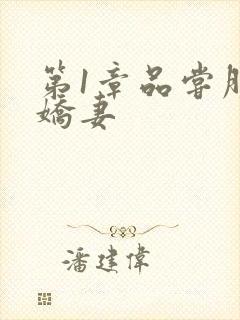 第1章品尝
娇妻
潘建伟